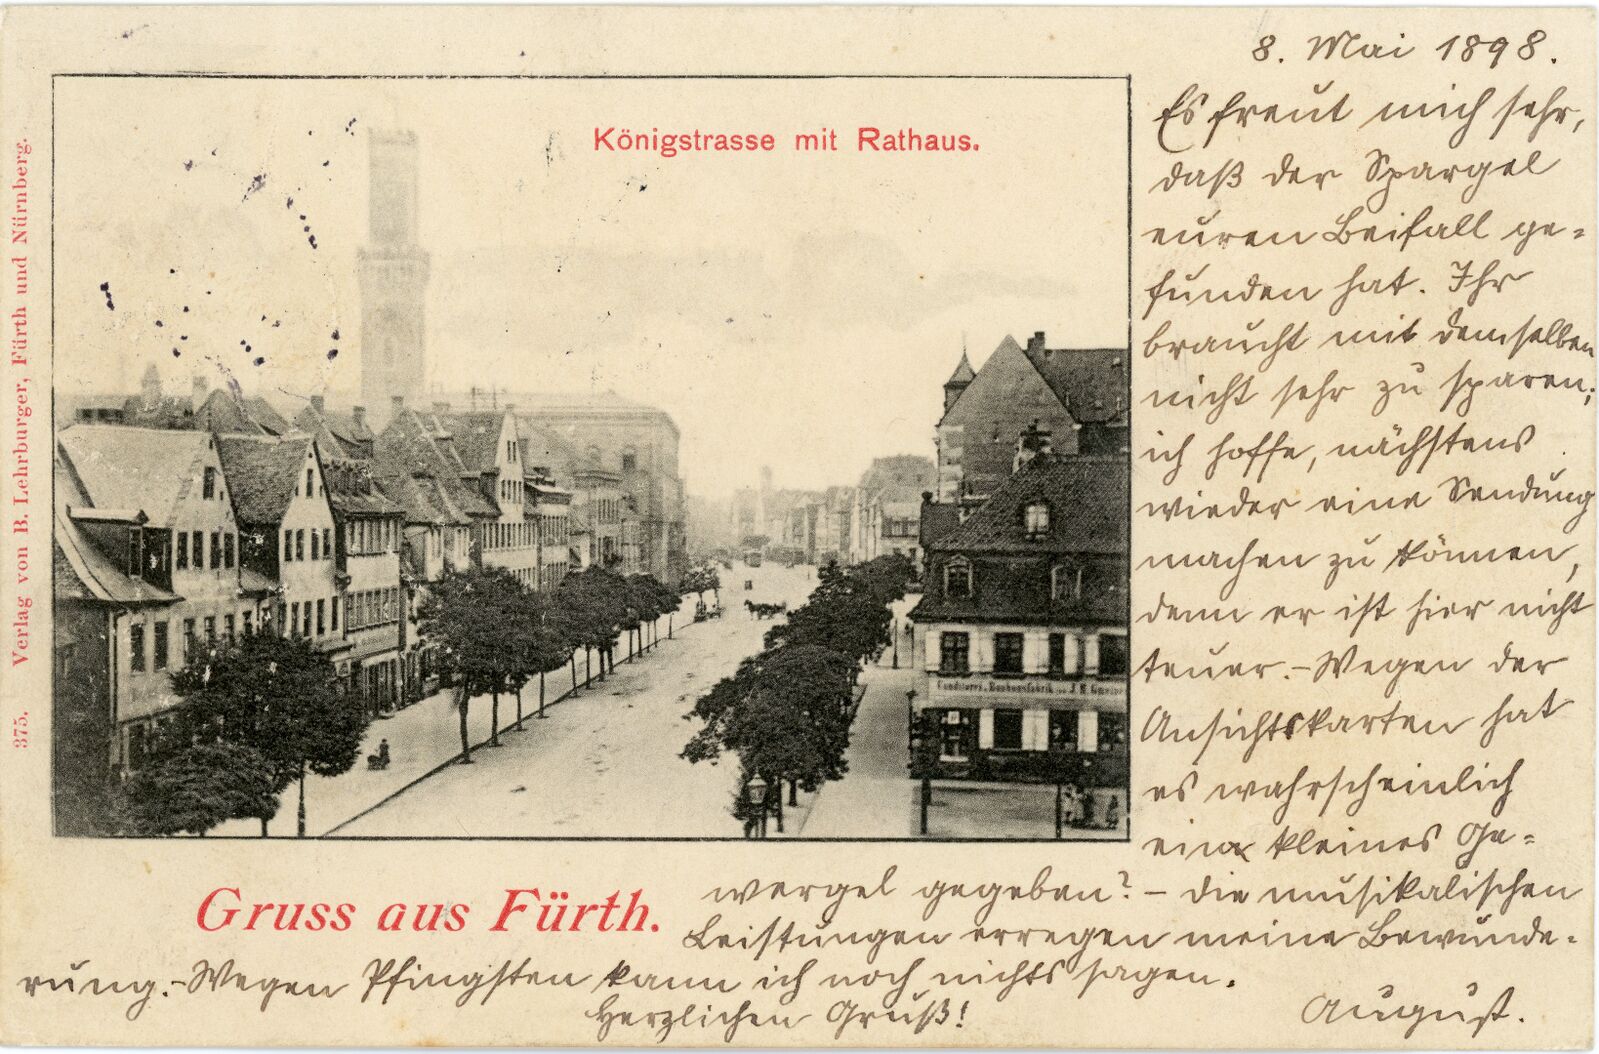 8. Mai 1898.
Es freut mich sehr,
daß der Spargel
euren Beifall ge=
funden hat. Ihr
braucht mit demselben
nicht sehr zu sparen;
ich hoffe, nächstens
wieder eine Sendung
machen zu können,
denn er ist hier nicht
teuer.–Wegen der
Ansichtskarten hat
es wahrscheinlich
ein kleines Ge=
wergel gegeben?–die musikalischen
Leistungen erregen meine Bewunde=
rung.–Wegen Pfingsten kann ich noch nichts sagen.
Herzlichen Gruß!
August.
Königstrasse mit Rathaus.
Gruss aus Fürth.
375. Verlag von B. Lehrburger, Fürth und Nürnberg.